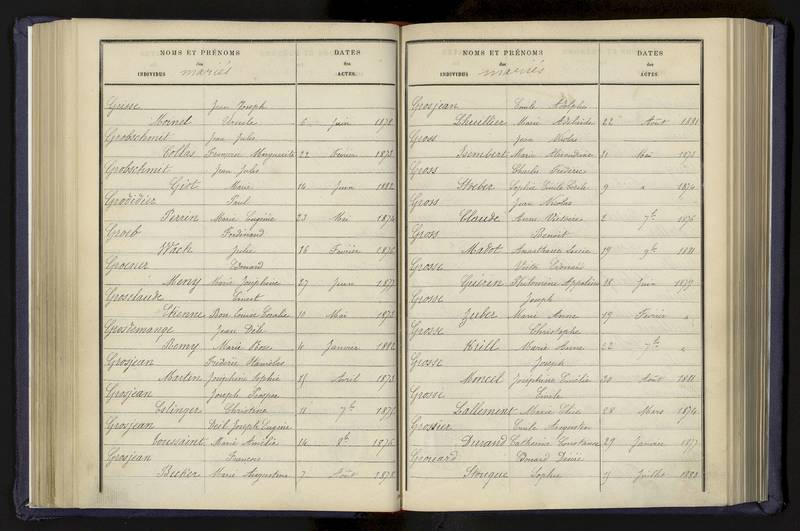 NOMS ET PRÉNOMS
des
INDIVIDUS mariés
DATES
des
ACTES.
Grisse Jean Joseph
Mornet Ursule 6 Juin 1878
Grobschmit Jean Jules
Collas Françoise Marguerite 22 Février 1873
Grobschmit Jean Jules
Giot Marie 14 Juin 1882
Grodidier Paul
Perrin Marie Eugénie 23 Mai 1874
Groeb Ferdinand
Wach Julie 26 Février 1876
Groener Edouard
Meny Marie Joséphine 27 Juin 1877
Grosclaude Ernest
Etienne Rose Louise Coralie 10 Mai 1873
Grosdemange Jean Dié
Remy Marie Rose 4 Janvier 1882
Grosjean Frédéric Stanislas
Martin Joséphine Sophie 15 Avril 1873
Grosjean Joseph Prosper
Eslinger Christine 11 7bre
Grosjean Joseph Eugène
Toussaint Marie Amélie 14 8bre 1876
Grosjean François
Becker Marie Augustine 7 Août 1878
NOMS ET PRÉNOMS
des
INDIVIDUS mariés
DATES
des
ACTES.
Grosjean Emile Adolphe
Lhuillier Marie Adelaïde 22 Août 1881
Gross Jean Nicolas
Isembert Marie Alexandrine 31 Mai 1873
Gross Charles Frédéric
Stoeber Sophie Emilie Cécile 9 " 1874
Gross Jean Nicolas
Claude Anne Victoire 2 7bre 1876
Gross Benoit
Madot Anasthasie Lucie 19 9bre 1881
Grosse Victor
Guérin Philomène Appoline 18 Juin 1879
Grosse Joseph
Zuber Marie Anne 19 Février "
Grosse Christophe
Kiell Marie Anne 22 7bre "
Grosse Joseph
Monceil Joséphine Emilie 20 Août 1881
Grosse Emile
Lallement Marie Elise 28 Mars 1874
Grossier Emile Augustin
Durand Catherine Constance 29 Janvier 1877
Grouard Edouard Désiré
Stouque Sophie Juillet 1882